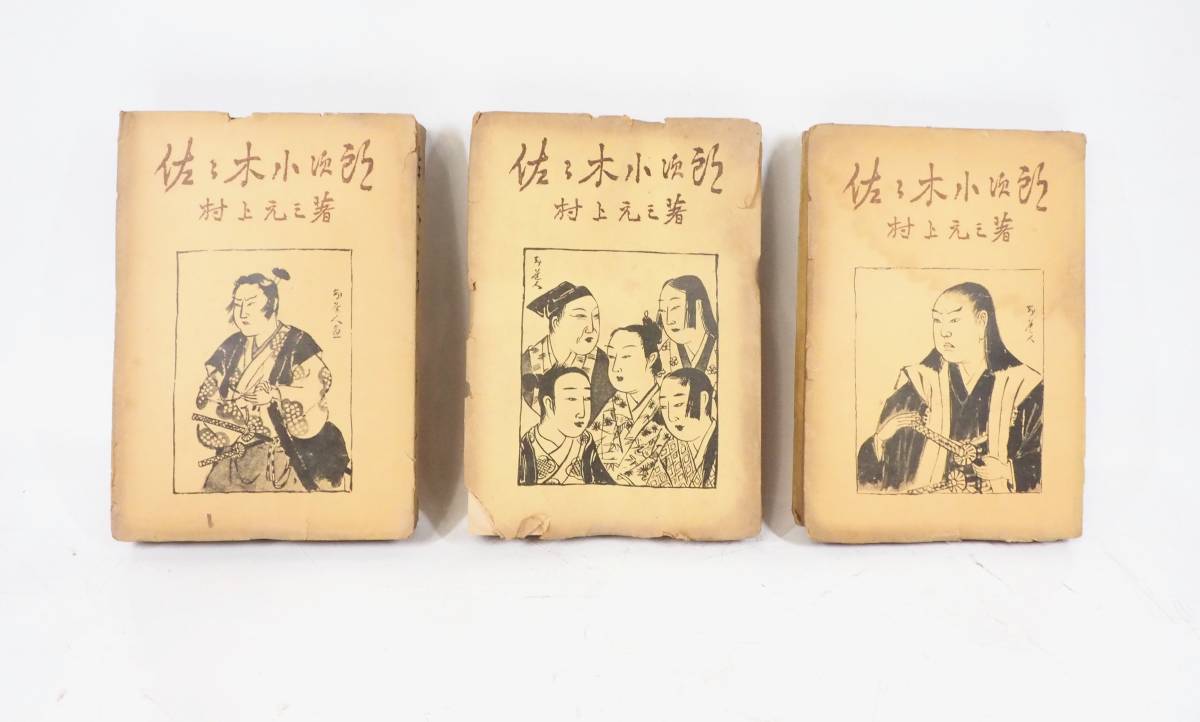 佐々木小次郎
村上元三著
佐々木小次郎
村上元三著
佐々木小次郎
村上元三著